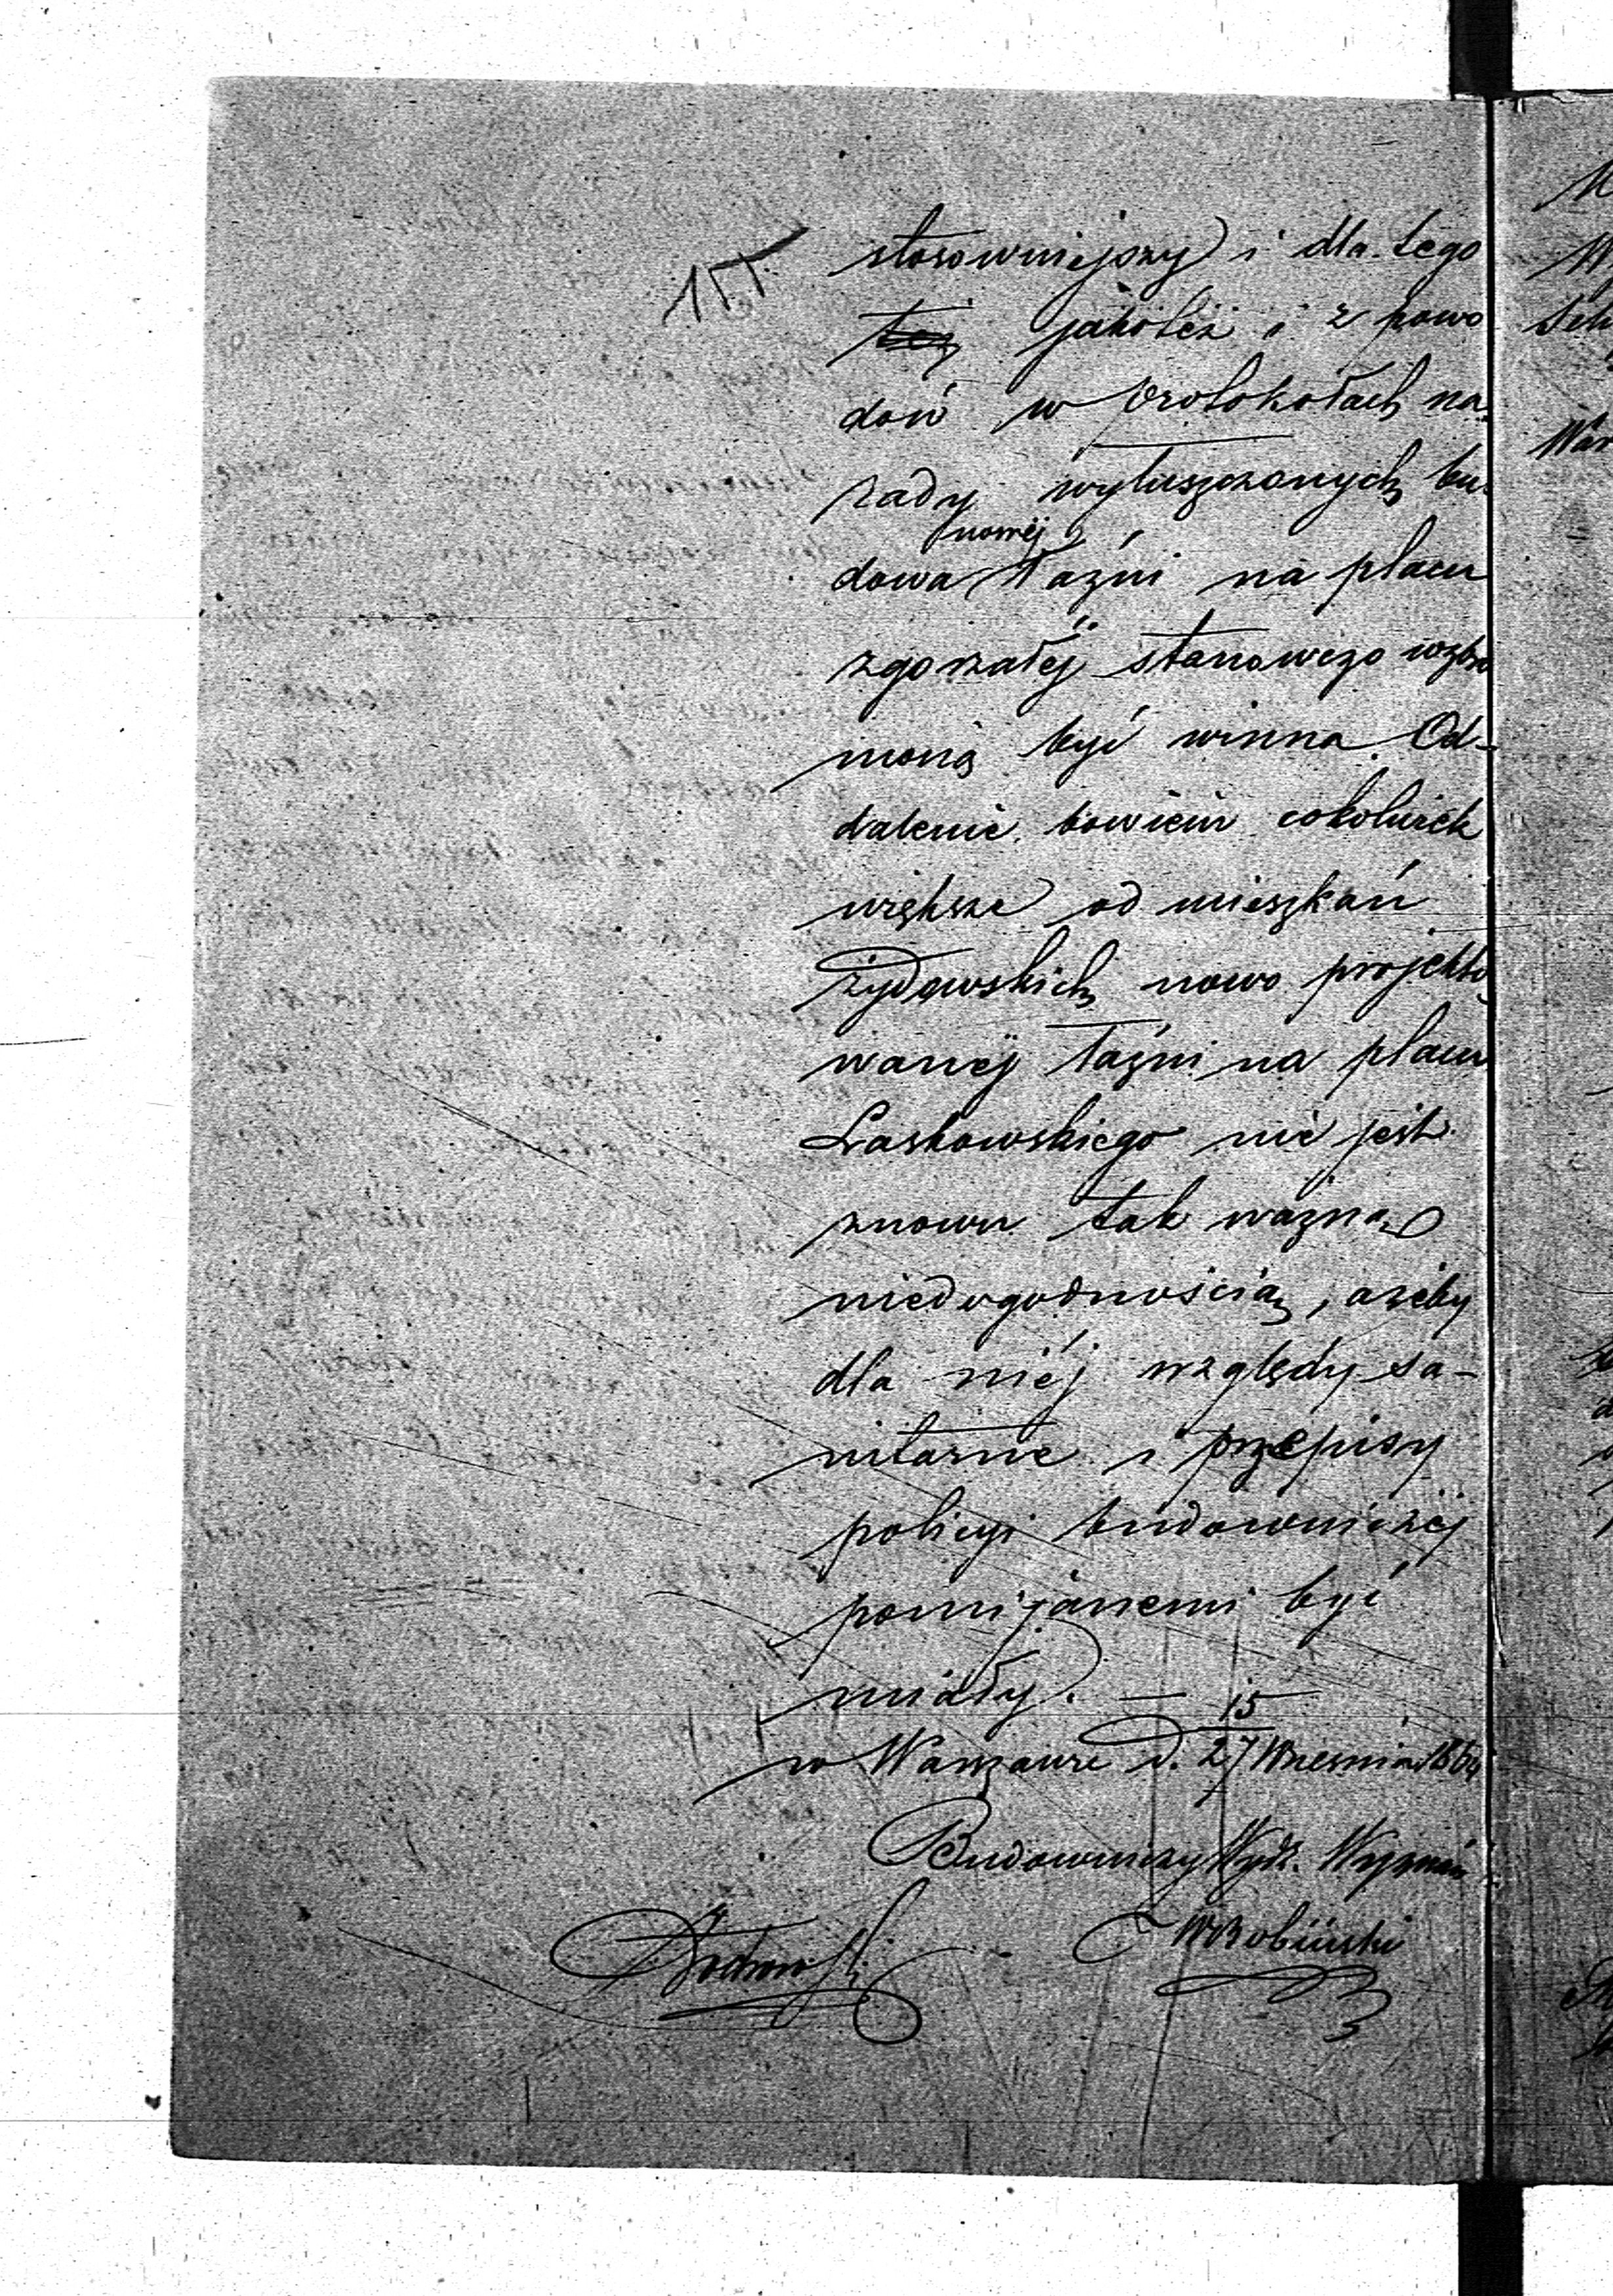 stosowniejszy i dla tego
jakoteż i z powo
dów w protokołach na
rady wyłuszczonych bu-
nowéj
dowa łaźni na placu
zgorzałéj stanowczo wzbro
nioną być winna. Od-
dalenie bowiem cokolwiek
większe od mieszkań
żydowskich nowo projekto
wanéj łaźni na placu
Laskowskiego nie jest
znowu tak ważną
niedogodnością, ażeby
dla niéj względy sa-
nitarne i przepisy
policyi budowniczéj
pomijanemi być
miały. —
15
w Warszawie d. 27 Września 1864
Budowniczy Wydz. Wyznań
WBobiński